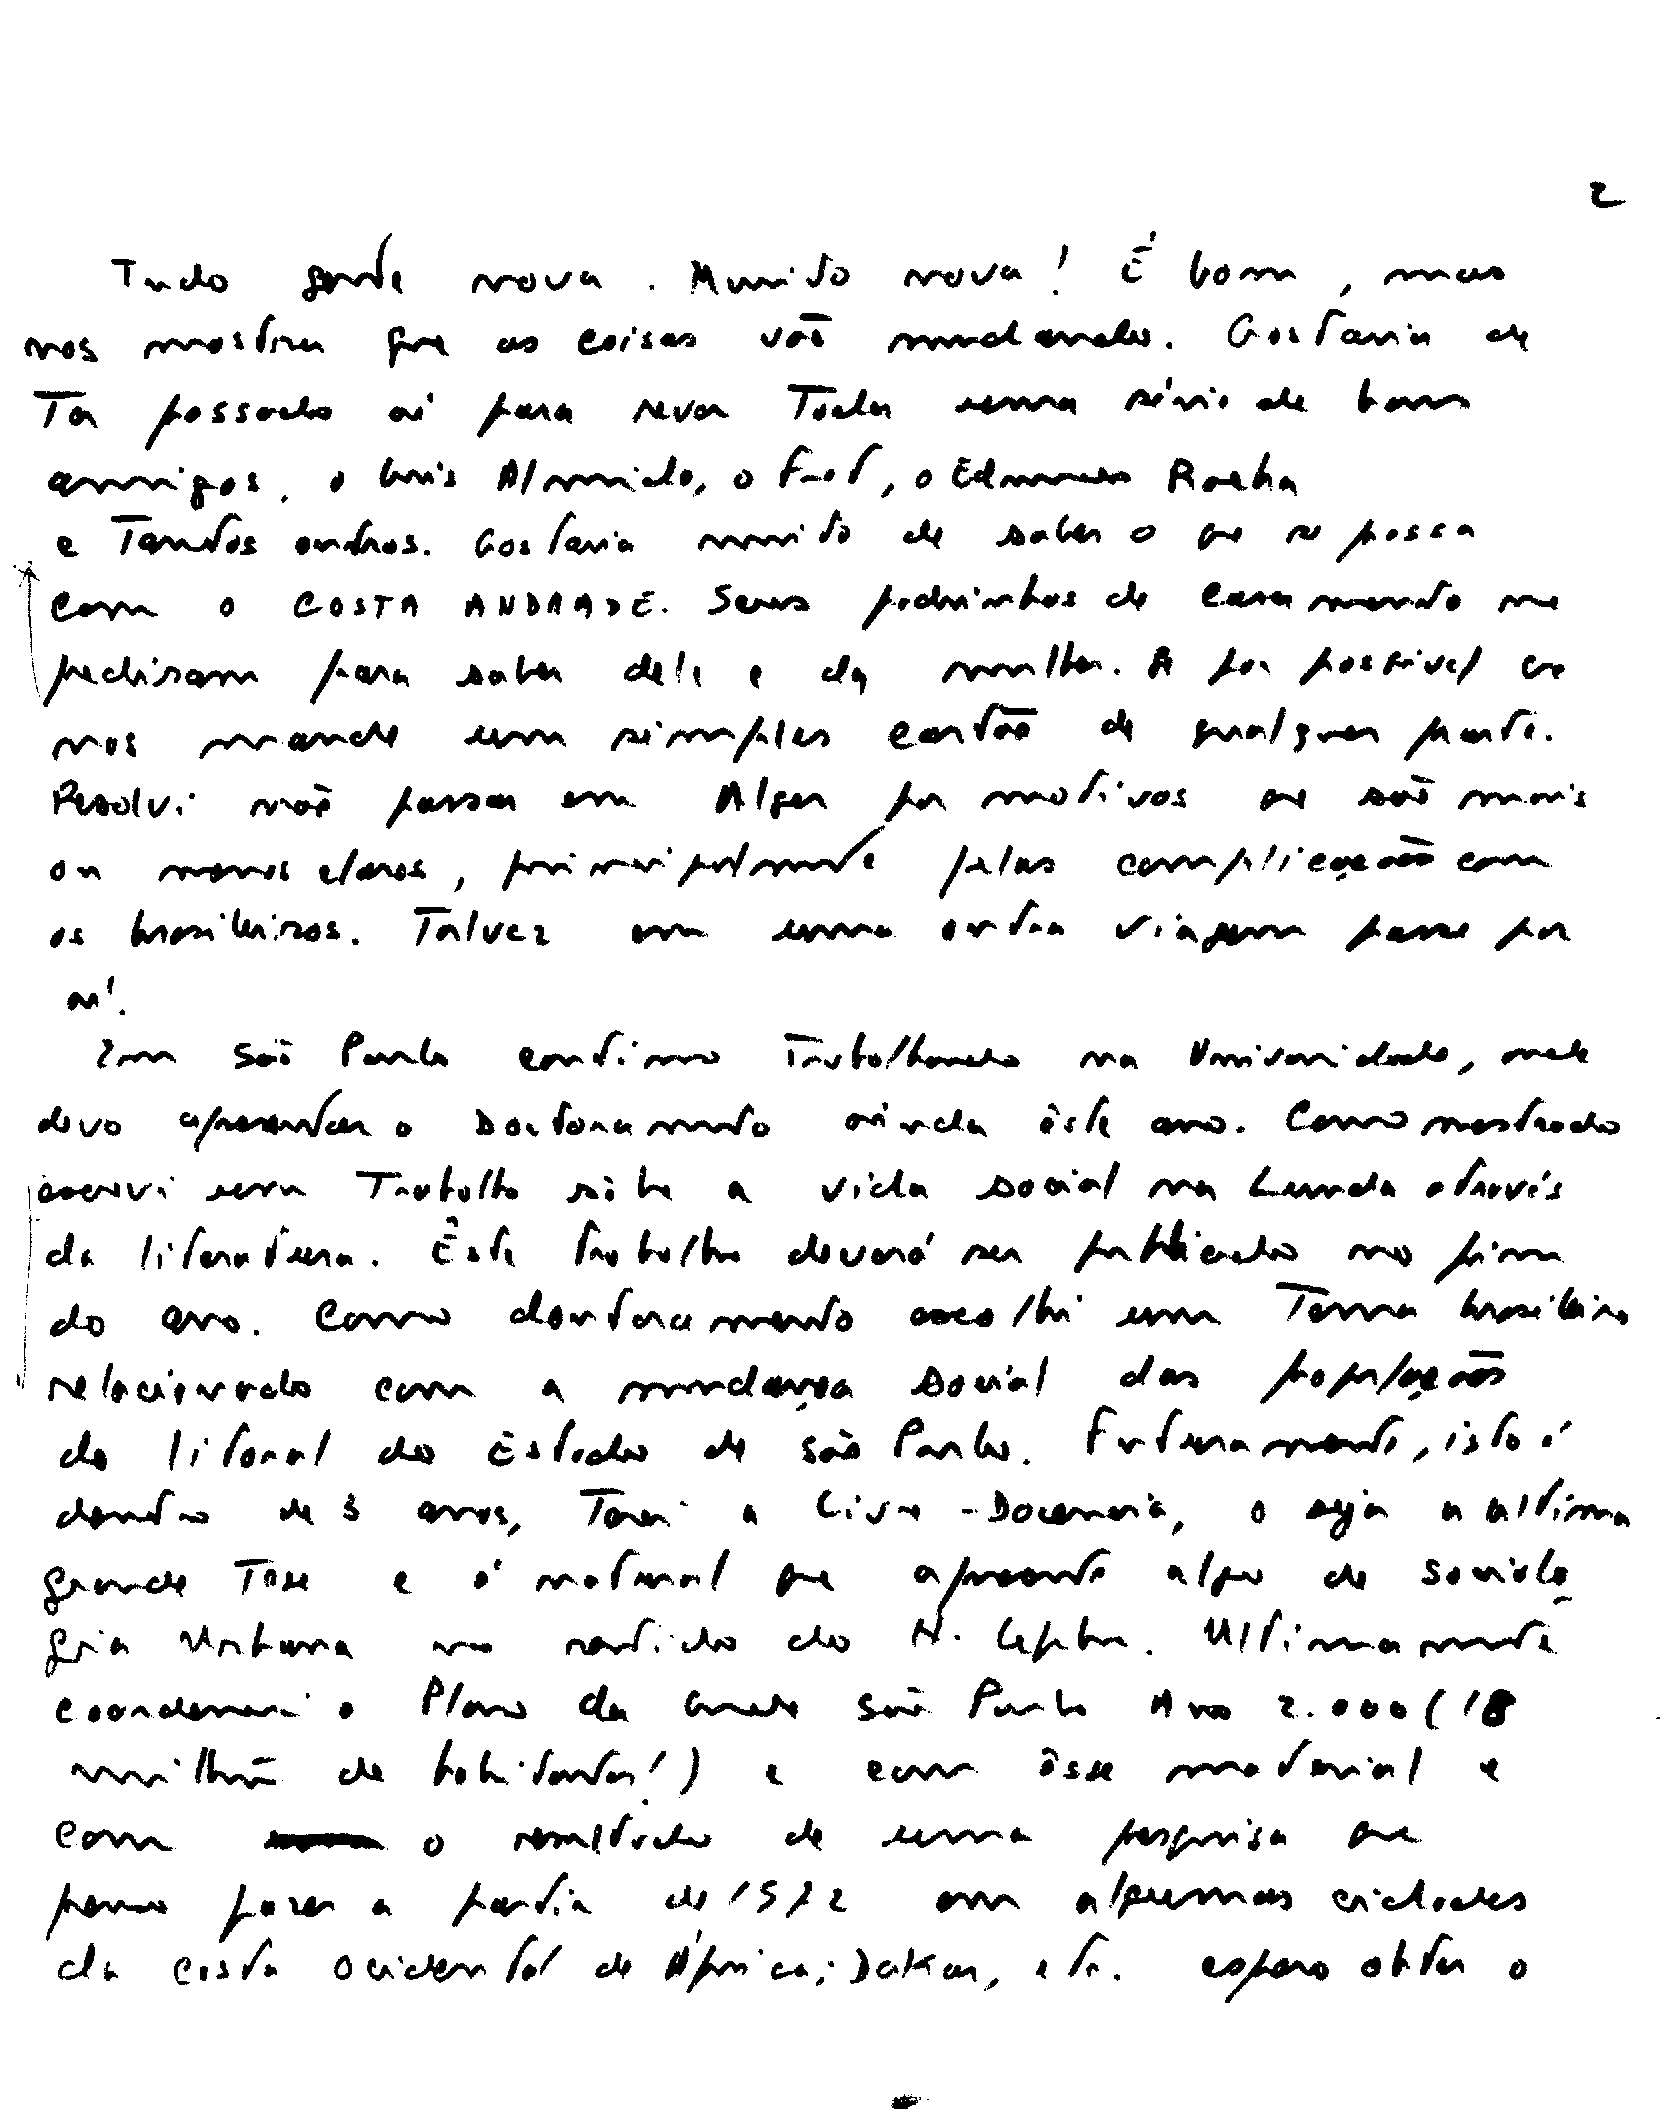 2
Tudo gente nova. Muito nova! É bom, mas
nos mostra que as coisas vão mudando. Gostaria de
Ter passado aí para rever Toda uma série de bons
amigos, o Luis Almeida, o Fred, o Edmundo Rocha
e Tantos outros. Gostaria muito de saber o que se passa
com o COSTA ANDRADE. Seus padrinhos de casamento me
pediram para saber dele e da mulher. Se for possível que
nos mande um simples cartão de qualquer parte.
Resolvi não passar em Alger por motivos que são mais
ou menos claros, principalmente pelas complicações com
os brasileiros. Talvez em uma outra viagem passe por
aí.
Em São Paulo continuo Trabalhando na Universidade, onde
devo apresentar o Doutoramento ainda êste ano. Como mestrado
escrevi um Trabalho sôbre a vida social na Luanda através
da literatura. Êste trabalho deverá ser publicado no fim
do ano. Como doutoramento escolhi um Tema brasileiro
relacionado com a mudança social das populações
do litoral do Estado de São Paulo. Futuramente, isto é
dentro de 3 anos, Terei a Livre-Docencia, o seja a ultima
grande Tese e é natural que apresente algo de Sociolo
gia Urbana no sentido do H. Lefebre. Ultimamente
coordenei o Plano da Grande São Paulo Ano 2.000 (18
milhões de habitantes!) e com êsse material e
com o resultado de uma pesquisa que
penso fazer a partir de 1972 em algumas cidades
da costa Ocidental de África; Dakar, etc. espero obter o